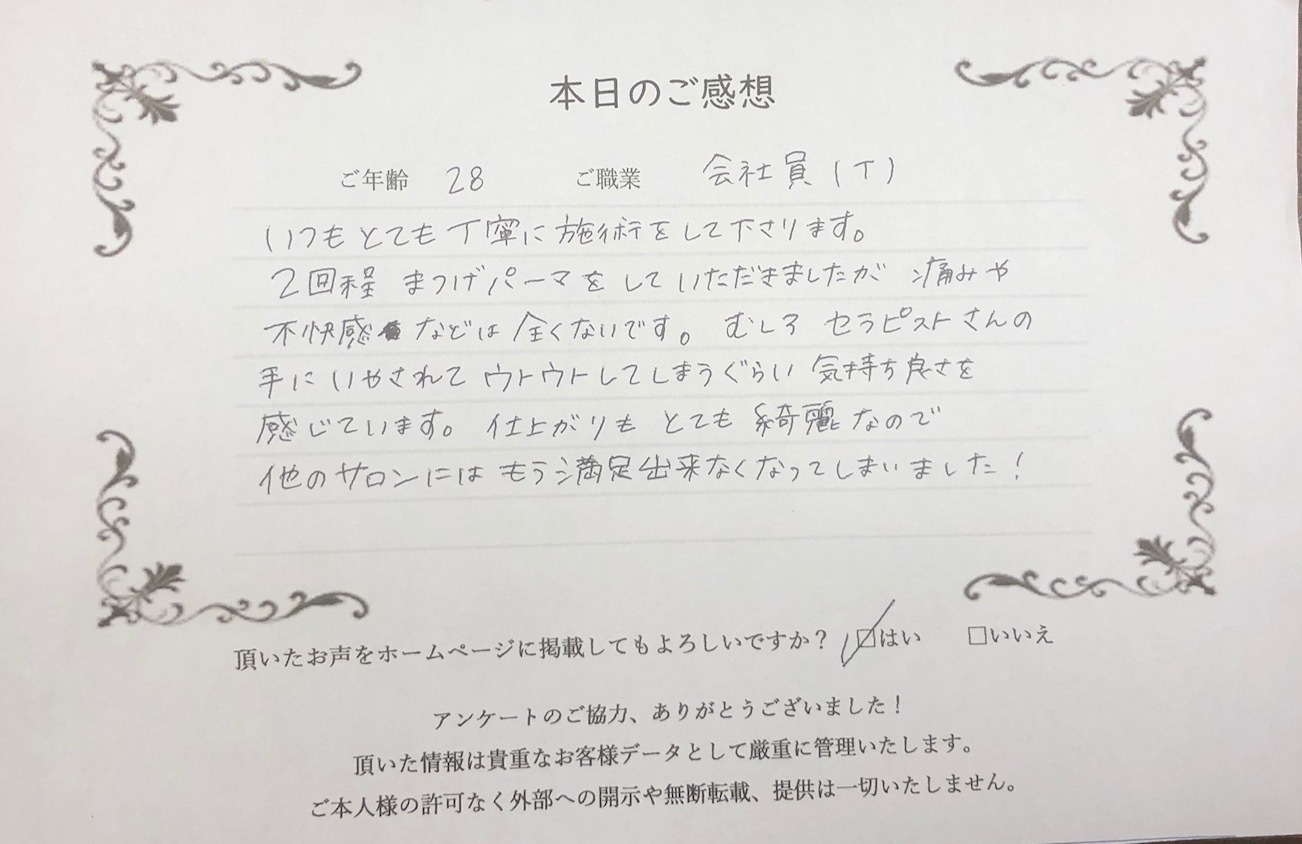 本日のご感想
ご年齢 28 ご職業 会社員(T)
いつもとても丁寧に施術をして下さります。
2回程 まつげパーマをしていただきましたが 痛みや
不快感などは全くないです。むしろ セラピストさんの
手にいやされて ウトウトしてしまうぐらい 気持ち良さを
感じています。仕上がりも とても 綺麗なので
他のサロンには もう満足出来なくなってしまいました!
頂いたお声をホームページに掲載してもよろしいですか? ☑はい □いいえ
アンケートのご協力、ありがとうございました!
頂いた情報は貴重なお客様データとして厳重に管理いたします。
ご本人様の許可なく外部への開示や無断転載、提供は一切いたしません。